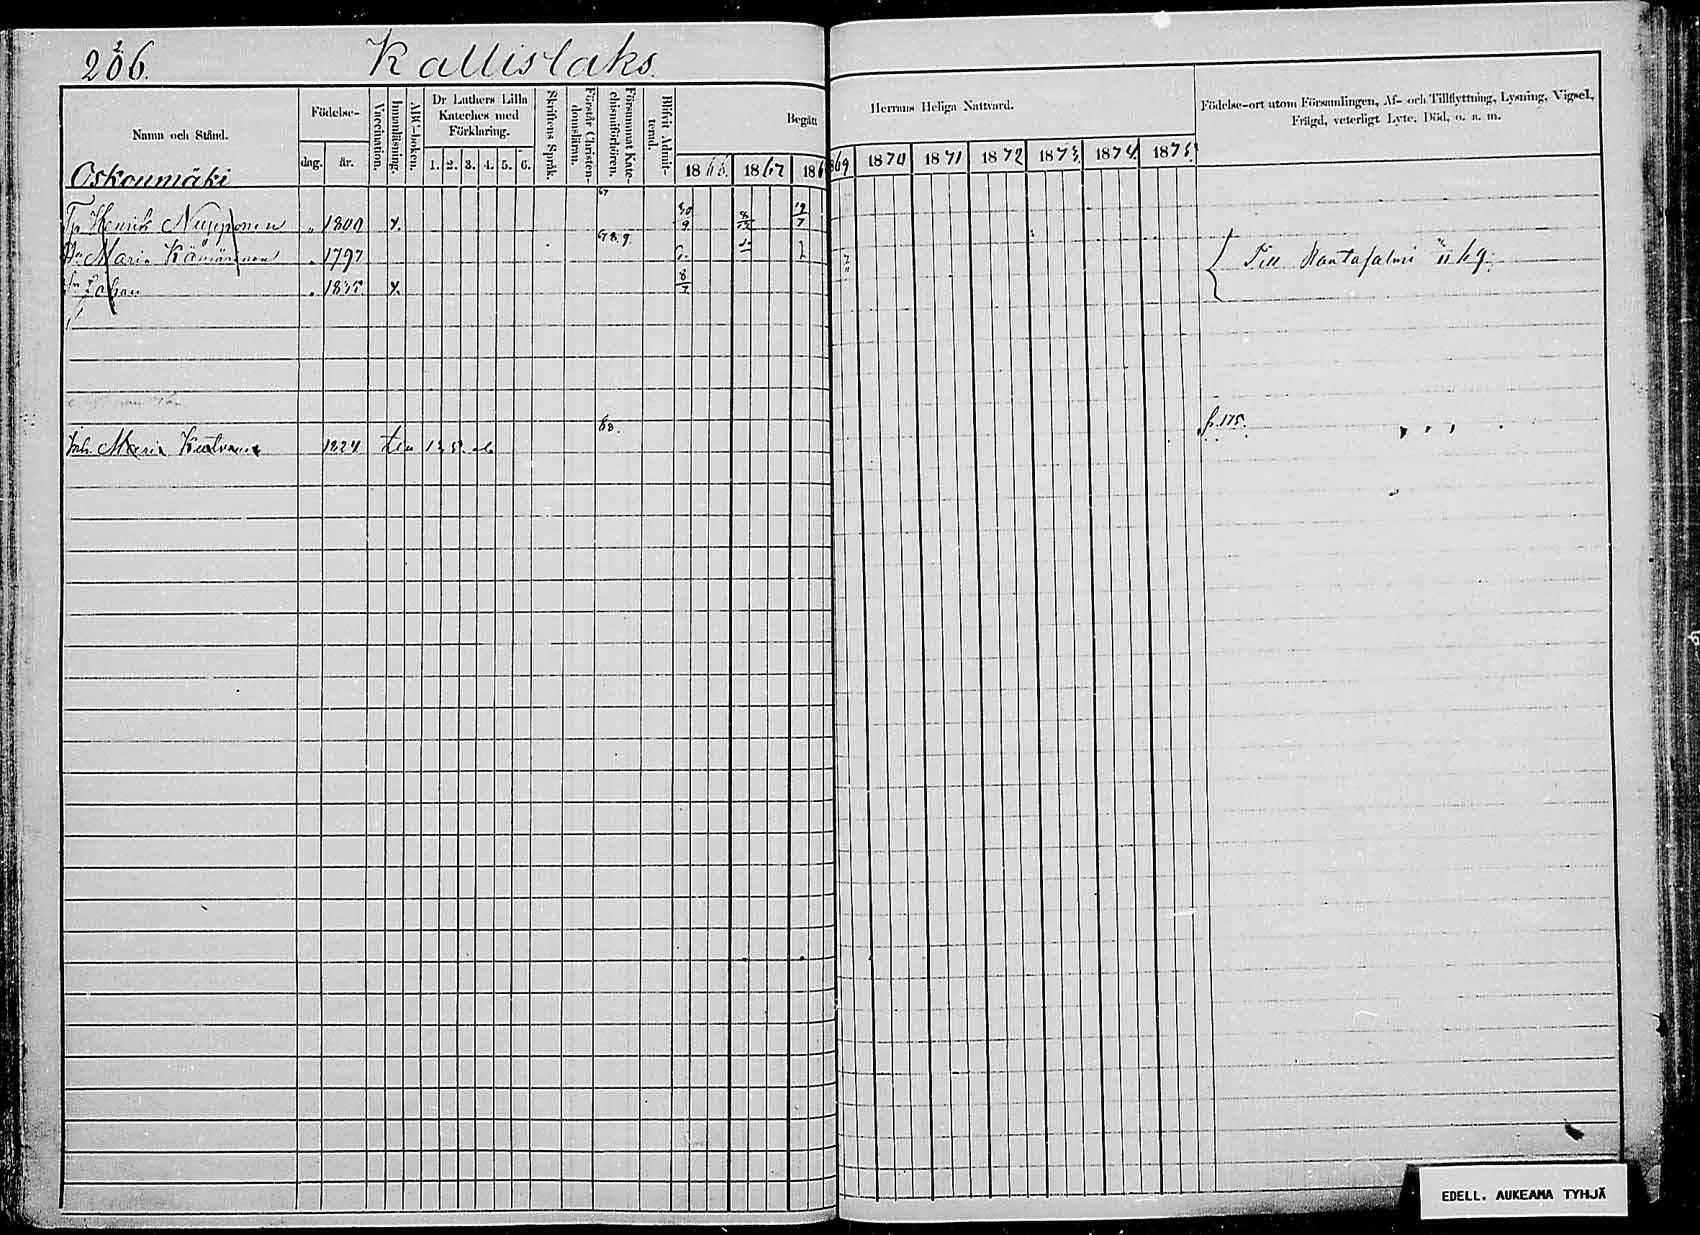 206.
2
Kallislaks.
Namn och Stånd.
Födelse-
dag. år.
Vaccination.
Innanläsning.
ABC-boken.
Dr Luthers Lilla Kateches med Förklaring.
1. 2. 3. 4. 5. 6.
Skriftens Språk.
Förstår Christendomsläran.
Försummat Katechismiförhören.
Blifvit Admitterad.
Begått
1867 186
Herrans Heliga Nattvard.
69 1870 1871 1872 1873 1874 1875
Födelse-ort utom Församlingen, Af- och Tillflyttning, Lysning, Vigsel,
Frägd, veterligt Lyte, Död, o. a. m.
Oskonmäki
67
Henrik Nupponen 1800 x.
67 8. 9.
Maria 1797
Johan 1835 x.
Till Rantasalmi 69.
68.
Inh. Maria 1824
p. 175.
EDELL. AUKEAMA TYHJÄ